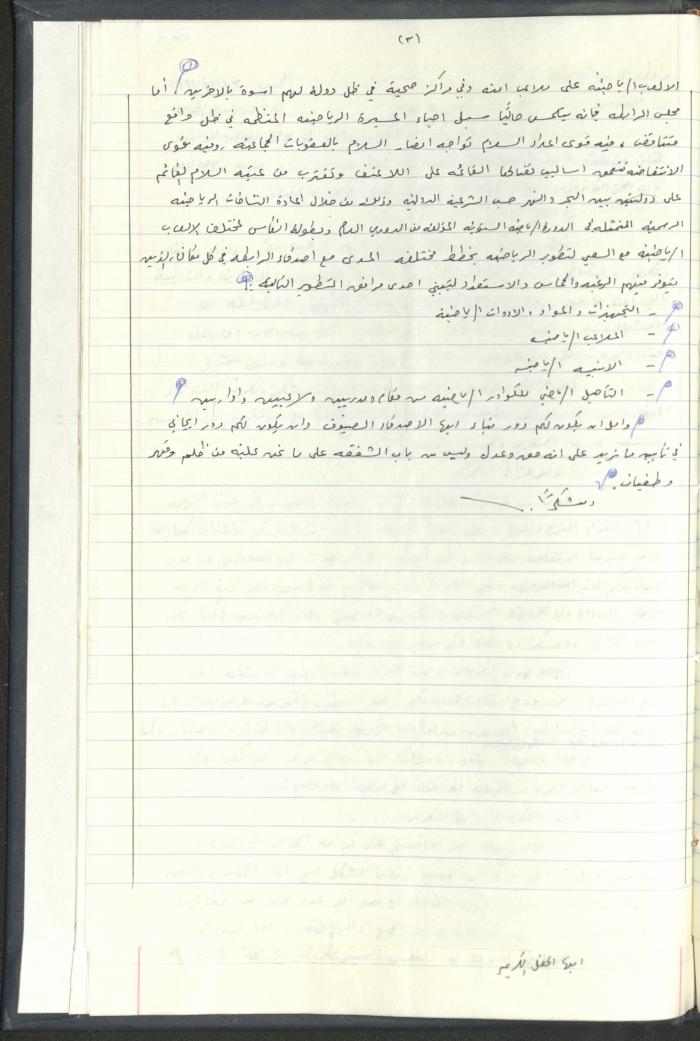 (٣)
الالعاب الرياضية على ملاعب امنه وفي مراكز صحية في ظل دولة لهم اسوة بالاخرين. أما
مجلس الرابطه فانه يتلمس حالياً سبل احياء المسيرة الرياضيه المنظمه في ظل واقع
متناقض، فيه قوى اعداء السلام تواجه انصار السلام بالعقوبات الجماعيه، وفيه قوى
الانتفاضه تنتهج اساليب نضالها القائمه على اللاعنف وتقترب من عتبه السلام القائم
على دولتين بين البحر والنهر حسب الشرعيه الدوليه وذلك من خلال اعادة النشاطات الرياضيه
الرسميه المتمثله في الدورة الرياضيه السنويه المؤلفه من الدوري العام وبطولة الكأس لمختلف الالعاب
الرياضيه مع السعي لتطوير الرياضه بخطط مختلفه المدى مع اصدقاء الرابطه في كل مكان، الذين
تتوفر فيهم الرغبه والحماس والاستعداد لتبني احدى مرافق التطوير التاليه :
- التجهيزات والمواد والادوات الرياضيه
- الملاعب الرياضيه
- الابنيه الرياضيه
- التأهيل الرياضي للكوادر الرياضيه من حكام ومدربين ولاعبين واداريين
وامل ان يكون لكم دور بناء ايها الاصدقاء الضيوف وان يكون لكم دور ايجابي
في تأييد ما نريد على انه حق وعدل وليس من باب الشفقه على ما نحن عليه من ظلم وقهر
وطغيان.
وشكراً.
ايها الحفل الكريم